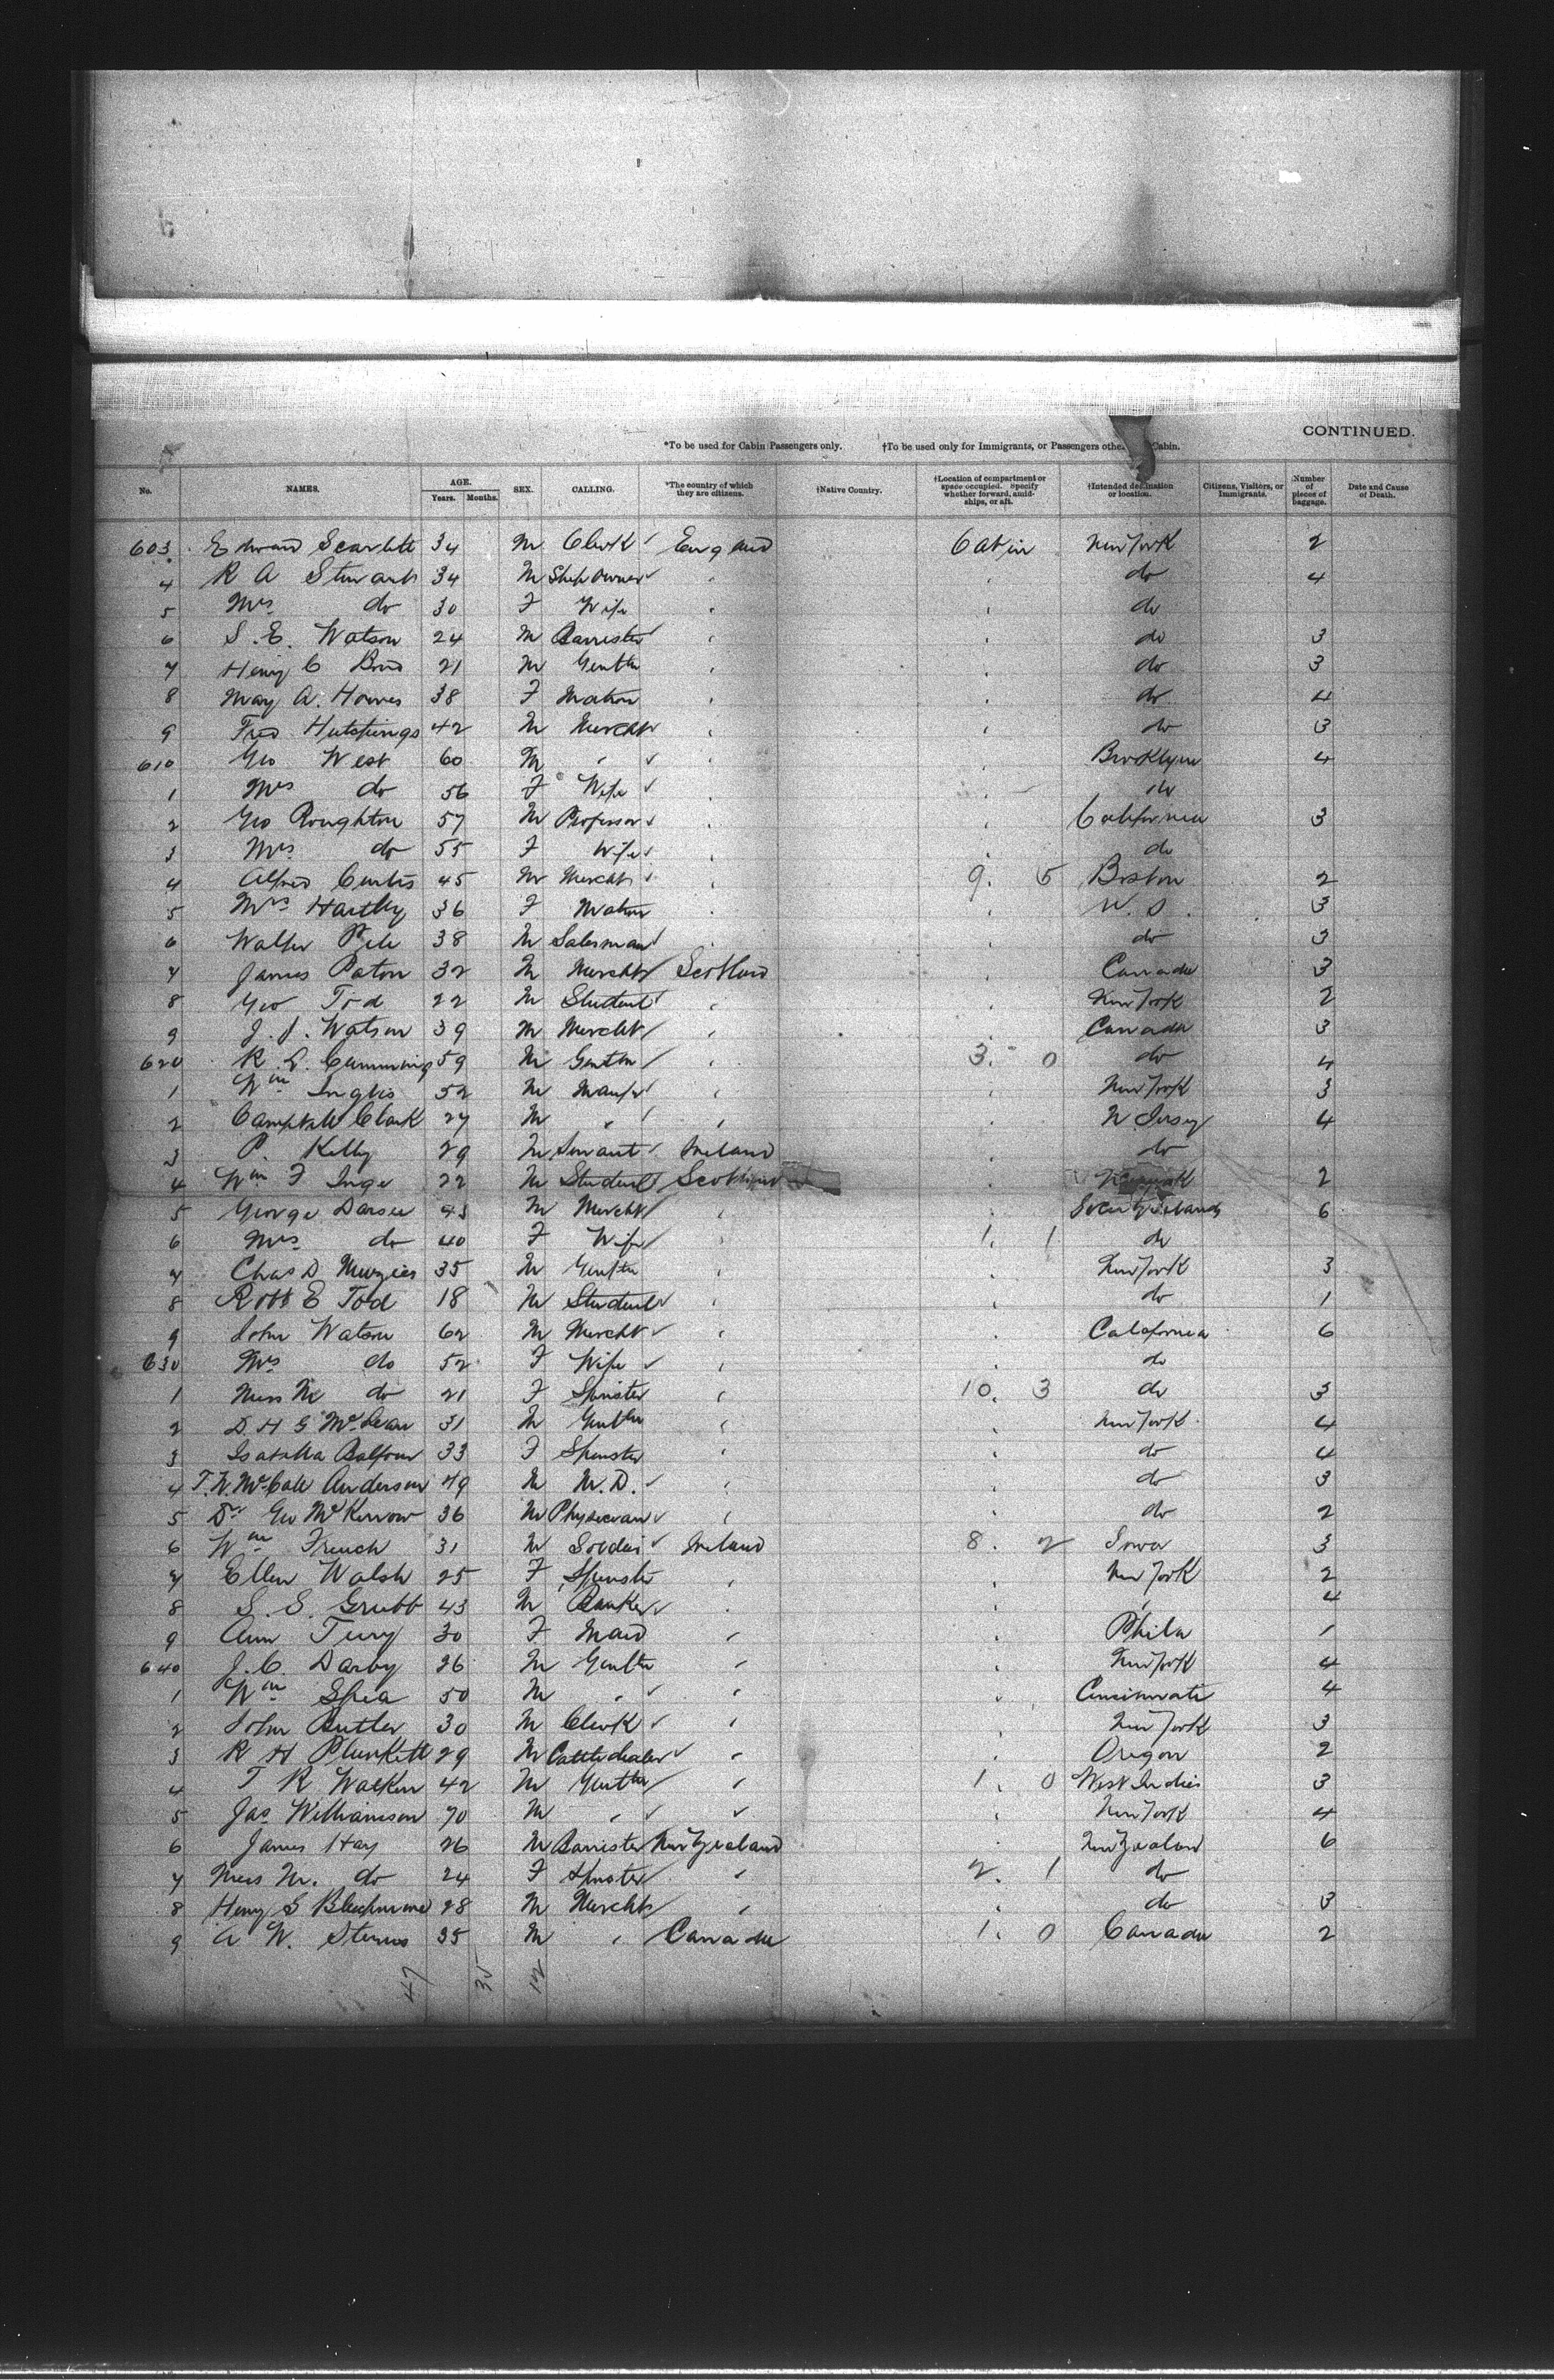 CONTINUED.
*To be used for Cabin Passengers only. †To be used only for Immigrants, or Passengers othe Cabin.
No. NAMES. AGE. Years. Months. SEX. CALLING. *The country of which they are citizens. †Native Country. †Location of compartment or space occupied. Specify whether forward, amidships, or aft. †Intended destination or location. Citizens, Visitors, or Immigrants. Number of pieces of baggage. Date and Cause of Death.
603 Edward Scarlett 34 M Clerk England Cabin New York 2
4 R A Stewart 34 M Ship Owner " " do 4
5 Mrs do 30 F Wife " " do
6 S. E. Watson 24 M Barrister " " do 3
7 Henry C 21 M Gentln " " do 3
8 May A. Howes 38 F Matron " " do 4
9 Fred Hutchings 42 M Mercht " " do 3
610 Geo West 60 M " " " Brooklyn 4
1 Mrs do 56 F Wife " " do
2 Geo Roughton 57 M Professor " " California 3
3 Mrs do 55 F Wife " " do
4 Alfred Curtis 45 M Mercht " 9. 5 Boston 2
5 Mrs Hartley 36 F Matron " " 3
6 Walter 38 M Salesman " " do 3
7 James Paton 32 M Mercht Scotland " Canada 3
8 Geo Tod 22 M Student " " New York 2
9 J. J. Watson 39 M Mercht " " Canada 3
620 R. Cumming 59 M Gentln " 3. 0 do 4
1 Wm Inglis 52 M Manfr " " New York 3
2 Campbell Clark 27 M " " " N. Jersey 4
3 P. Kelly 29 M Servant Ireland " do
4 Wm F Inge 22 M Student Scotland New York 2
5 George Darsie 43 M Mercht " " 6
6 Mrs do 40 F Wife " 1. 1 do
7 Chas D Menzies 35 M Gentln " " New York 3
8 Robt E Tod 18 M Student " " do 1
9 John Watson 62 M Mercht " " California 6
630 Mrs do 52 F Wife " " do
1 Miss M do 21 F Spinster " 10. 3 do 3
2 D. H G McLean 31 M Gentln " " New York 4
3 Isabella Balfour 33 F Spinster " " do 4
4 T. McCall Anderson 49 M M.D. " " do 3
5 Dr Geo McKerrow 36 M Physician " " do 2
6 Wm French 31 M Soldier Ireland 8. 2 Iowa 3
7 Ellen Walsh 25 F Spinster " " New York 2
8 S. S. Grubb 43 M Banker " " " 4
9 Ann Terry 30 F Maid " " Phila 1
640 J. C. Darby 26 M Gentln " " New York 4
1 Wm Shea 50 M " " " Cincinnati 4
2 John Butler 30 M Clerk " " New York 3
3 R H Plunkett 29 M Cattle dealer " " Oregon 2
4 T R Walker 42 M Gentln " 1. 0 West Indies 3
5 Jas Williamson 70 M " " " New York 4
6 James Hay 26 M Barrister New Zealand " New Zealand 6
7 Miss M. do 24 F Spinster " 2. 1 do
8 Henry S 28 M Mercht " " do 3
9 A W. 35 M " Canada 1. 0 Canada 2
47 35 12